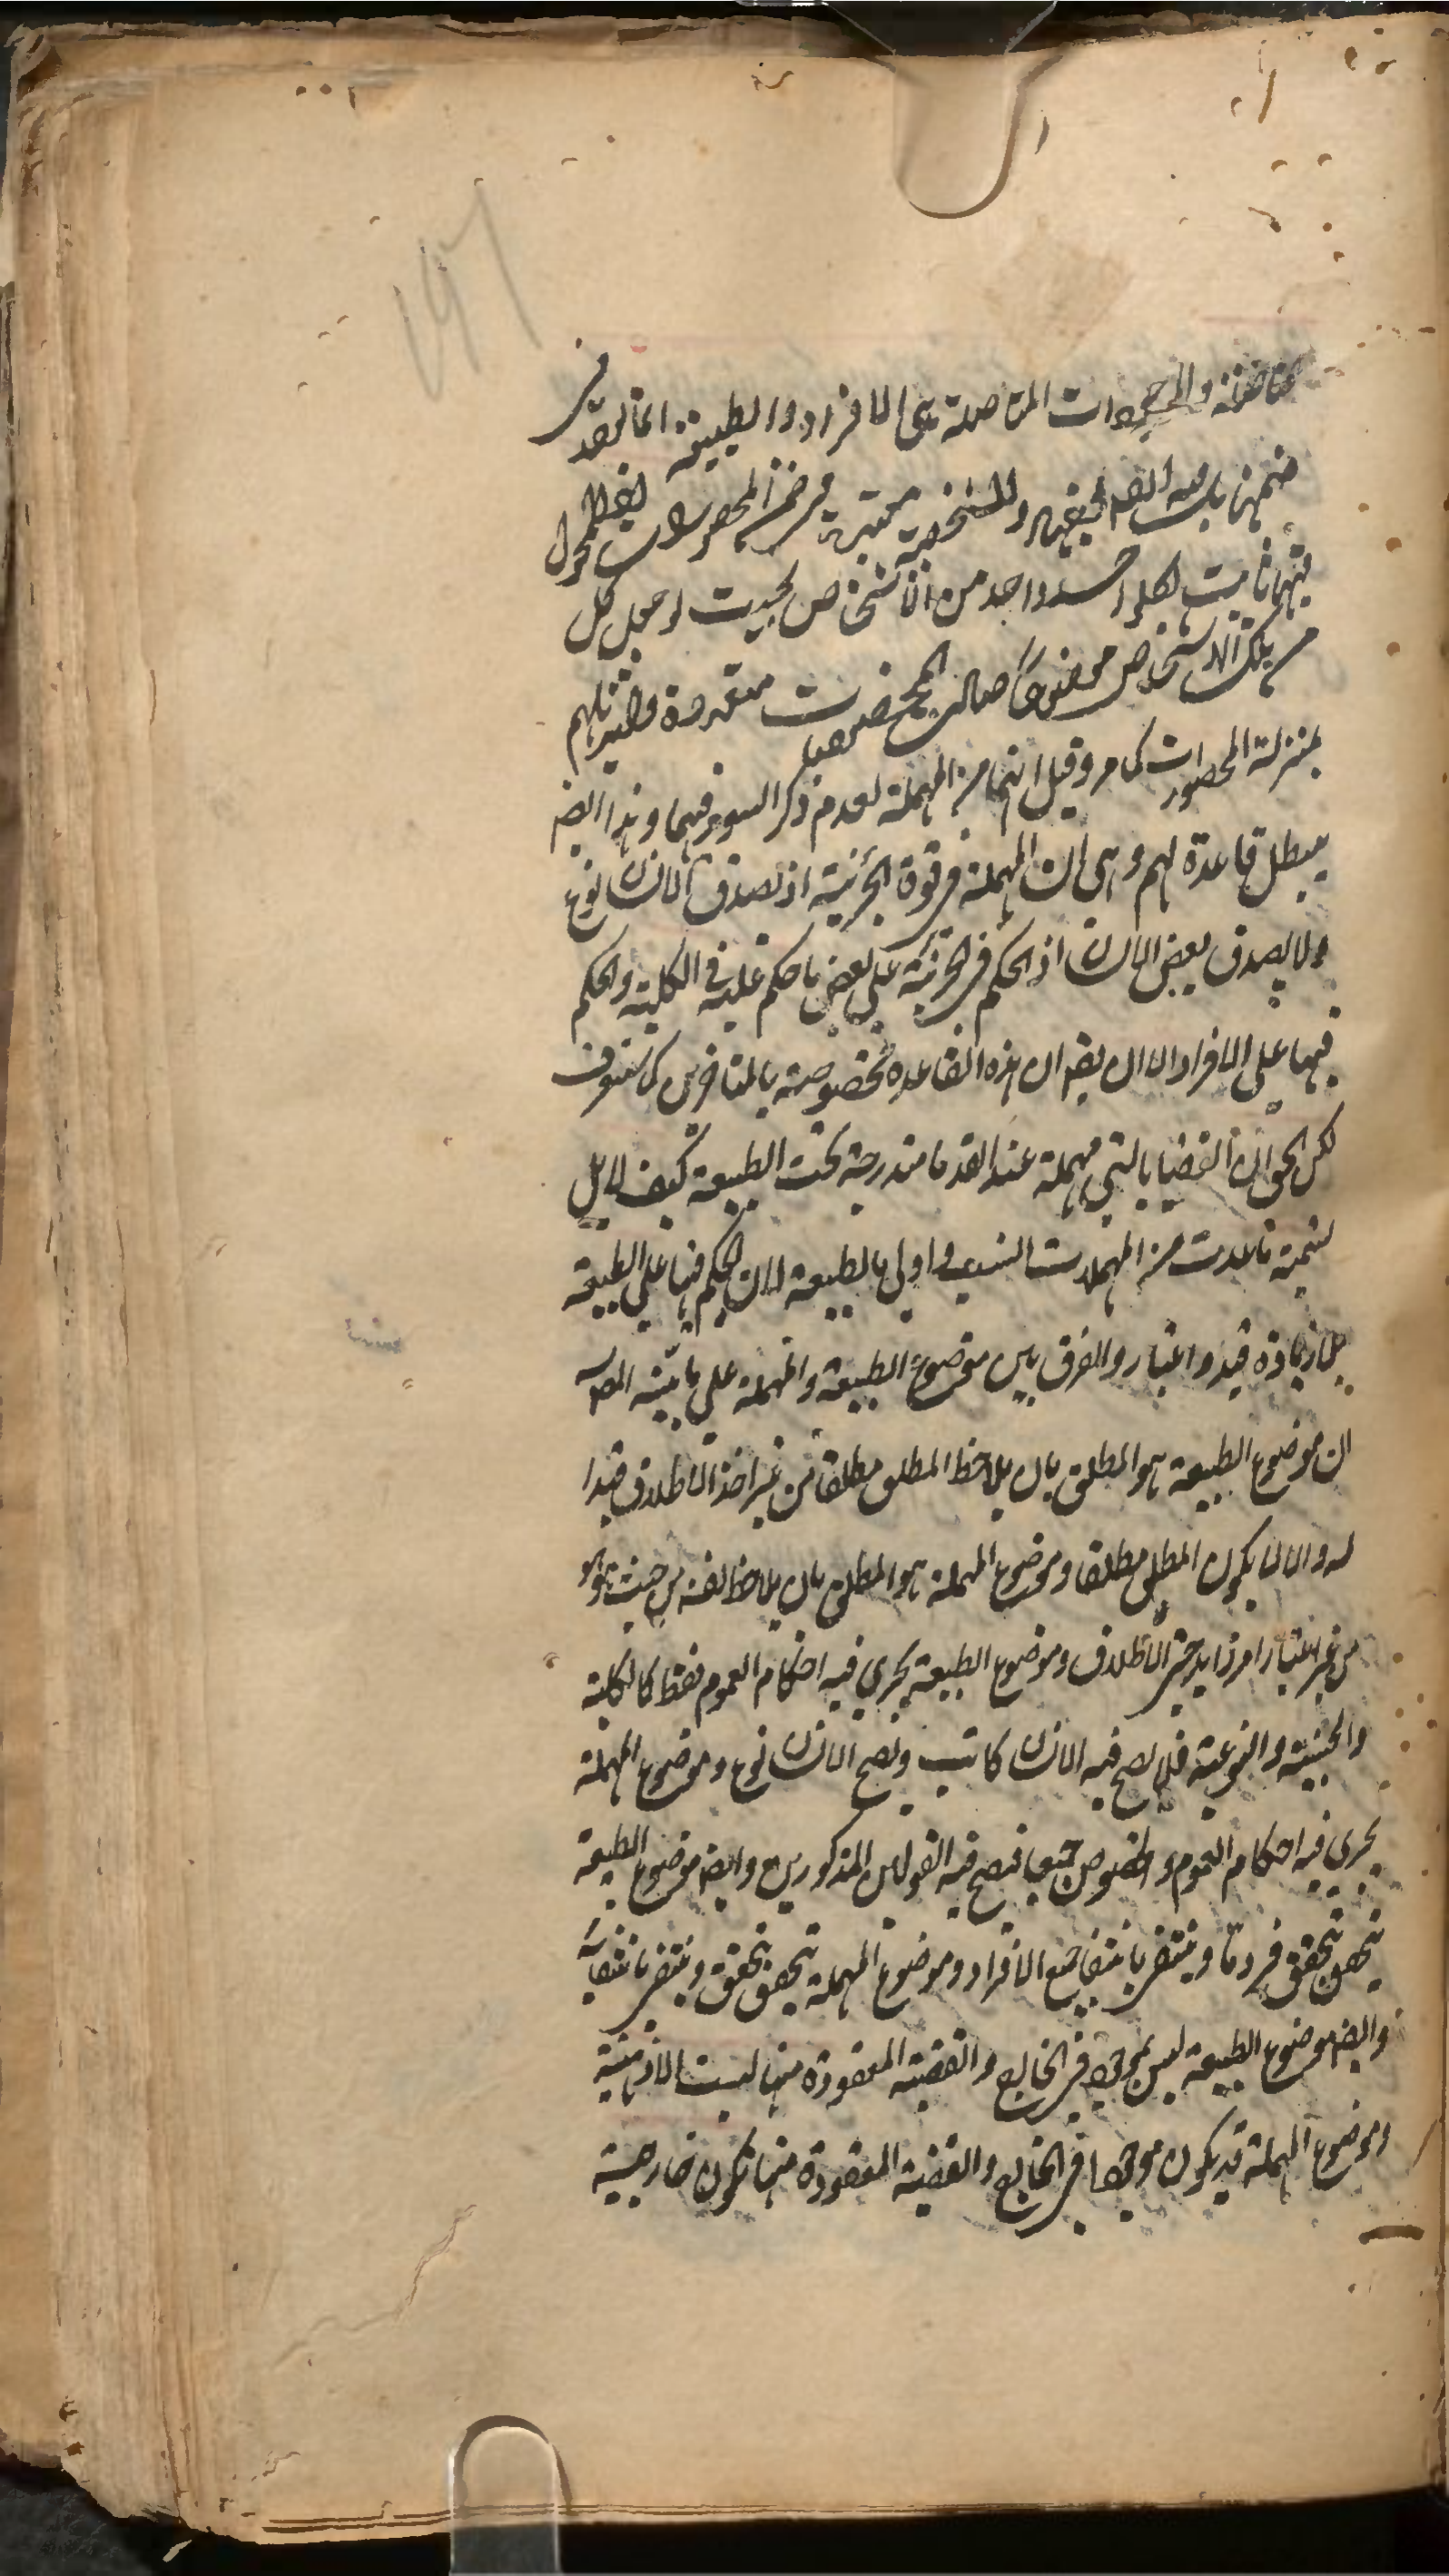 والموجودات المتاصلة هى الافراد والطبيعة انما توجد فى
ضمنها والشخصية معتبرة فى ضمن المحصورات ايضا المحمول
فيها ثابت لكل واحد واحد من الاشخاص بحيث لو جعل كل
من تلك الاشخاص موضوعا متعددة
بمنزلة المحصورات كما مر وقيل انها من المهملة لعدم ذكر السور فيها وهذا ايضا
يبطل قاعدة لهم وهى ان المهملة فى قوة الجزئية اذ تصدق الانسان نوع
ولا يصدق بعض الانسان اذ الحكم فى الجزئية على بعض ما حكم عليه فى الكلية والحكم
فيها على الافراد الا ان يقه ان هذه القاعدة مخصوصة بالمتاخرين كما ستعرف
لكن الحق ان القضايا التى مهملة عند القدما مندرجة تحت الطبيعة كيف لا بل
تسمية ما عدت من المهملات انسب واولى بالطبيعة لان الحكم فيها على الطبيعة
بلا زيادة قيد واعتبار والفرق بين موضوع الطبيعة والمهملة على ما بينه المصه
ان موضوع الطبيعة هو المطلق بان يلاحظ المطلق مطلقا من غير اخذ الاطلاق قيدا
له والا لا يكون المطلق مطلقا وموضوع المهملة هو المطلق بان يلاحظ لفسه من حيث هو هو
من غير اعتبار امر زايد حتى الاطلاق وموضوع الطبيعة يجرى فيه احكام العموم فقط كالكلية
والجنسية والنوعية فلا يصح فيه الانسان كاتب ويصح الانسان نوع وموضوع المهملة
يجرى فيه احكام العموم والخصوص جميعا فيصح فيه القولان المذكورين وايضا موضوع الطبيعة
يتحقق بتحقق فرد ما وينتفى بانتفا جميع الافراد وموضوع المهملة يتحقق بتحقق وينتفى بانتفايه
وايضا موضوع الطبيعة ليس بموجود فى الخارج والقضية المعقودة منها ليست الا ذهنية
وموضوع المهملة قد يكون موجودا فى الخارج والقضية المعقودة منها تكون خارجية